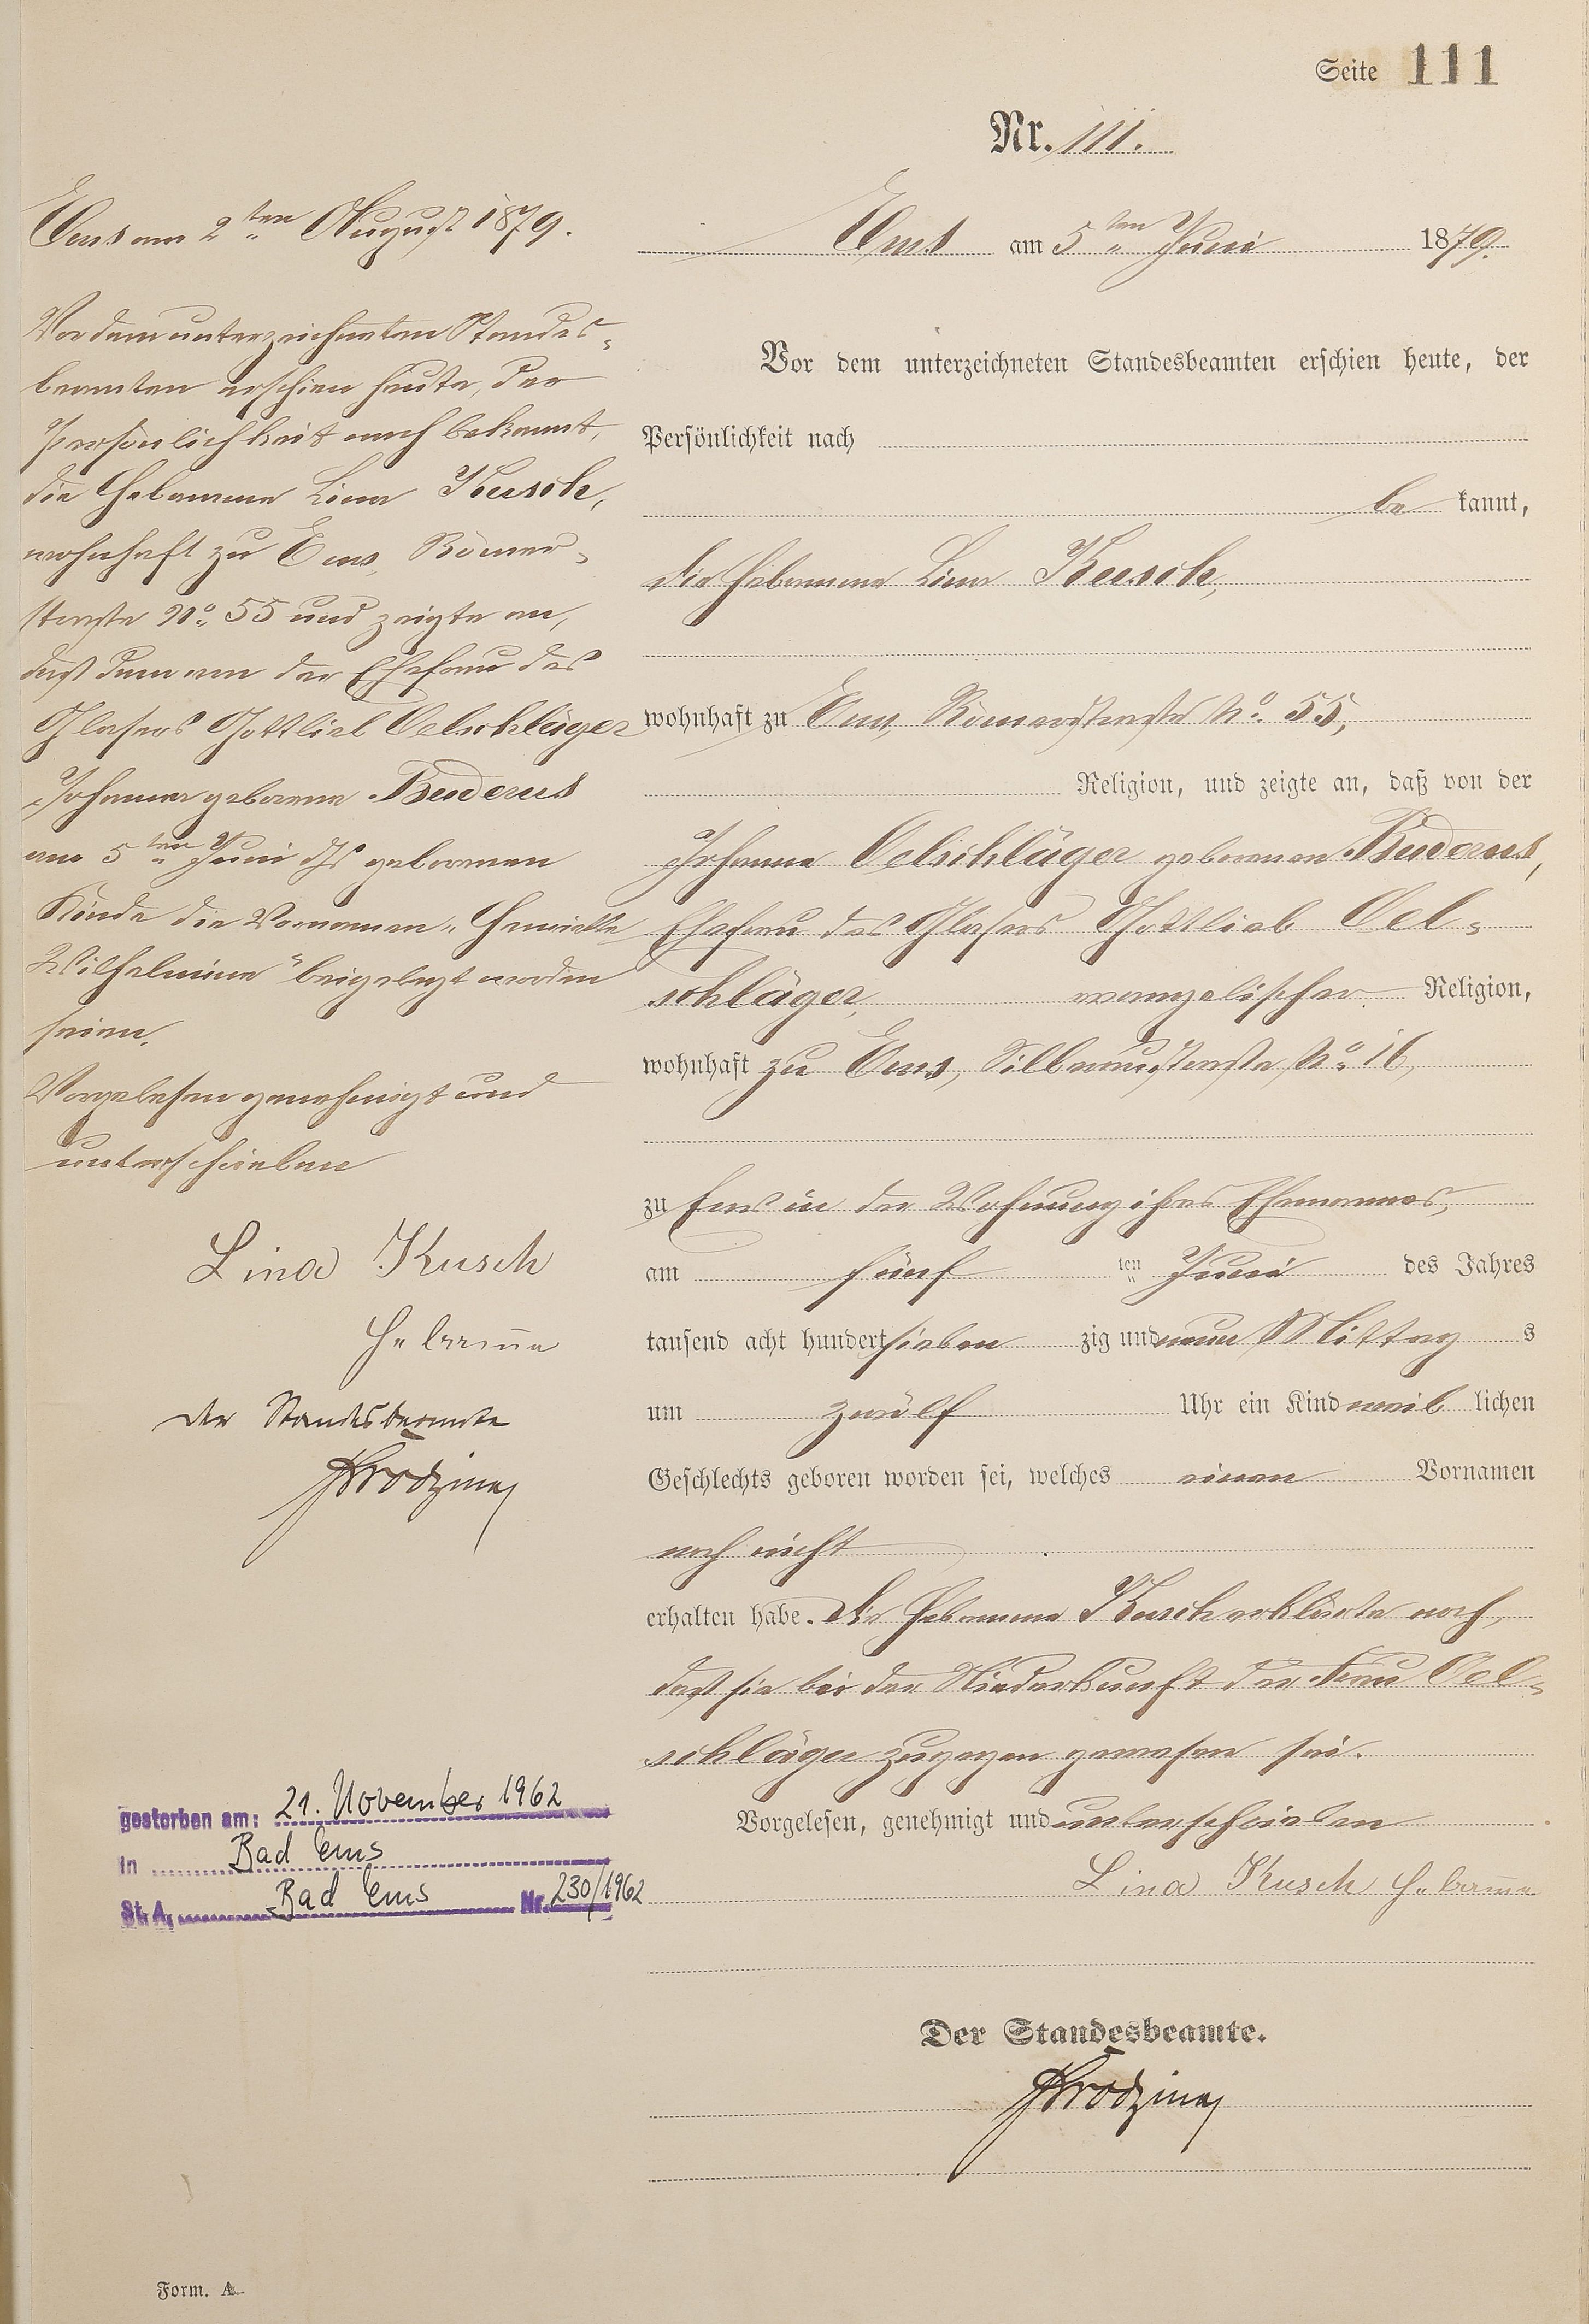 Seite 111
Nr. 111.
Ems am 5ten Juni 1879.
Vor dem unterzeichneten Standesbeamten erschien heute, der
Persönlichkeit nach
be kannt,
die Hebamme Lina Kusch,
wohnhaft zu Ems, Römerstraße No. 55,
Religion, und zeigte an, daß von der
Johanna Oelschläger geborenen Buderus,
Ehefrau des Glasers Gottlieb Oel-
schläger, evangelischer Religion,
wohnhaft zu Ems, Silberaustraße No. 16,
zu Ems in der Wohnung ihres Ehemannes,
am fünf ten Juni des Jahres
tausend acht hundert sieben zig und neun Mittag s
um zwölf Uhr ein Kind weib lichen
Geschlechts geboren worden sei, welches einen Vornamen
noch nicht
erhalten habe. Die Hebamme Kusch erklärte noch,
daß sie bei der Niederkunft der Frau Oel-
schläger zugegen gewesen sei.
Vorgelesen, genehmigt und unterschrieben
Lina Kusch Hebamme
Der Standesbeamte.
Ems am 2ten August 1879.
Vor dem unterzeichneten Standes-
beamten erschien heute, der
Persönlichkeit nach bekannt,
die Hebamme Lina Kusch,
wohnhaft zu Ems, Römer-
straße No. 55 und zeigte an,
daß dem von der Ehefrau des
Glasers Gottlieb Oelschläger
Johanna geborene Buderus
am 5ten Juni ds Js geborenen
Kinde die Vornamen „Henriette
Wilhelmine" beigelegt worden
seien.
Vorgelesen genehmigt und
unterschrieben
Lina Kusch
Hebamme
Der Standesbeamte
gestorben am: 21. November 1962
in Bad Ems
St. A. Bad Ems Nr. 230/1962
Form. A.